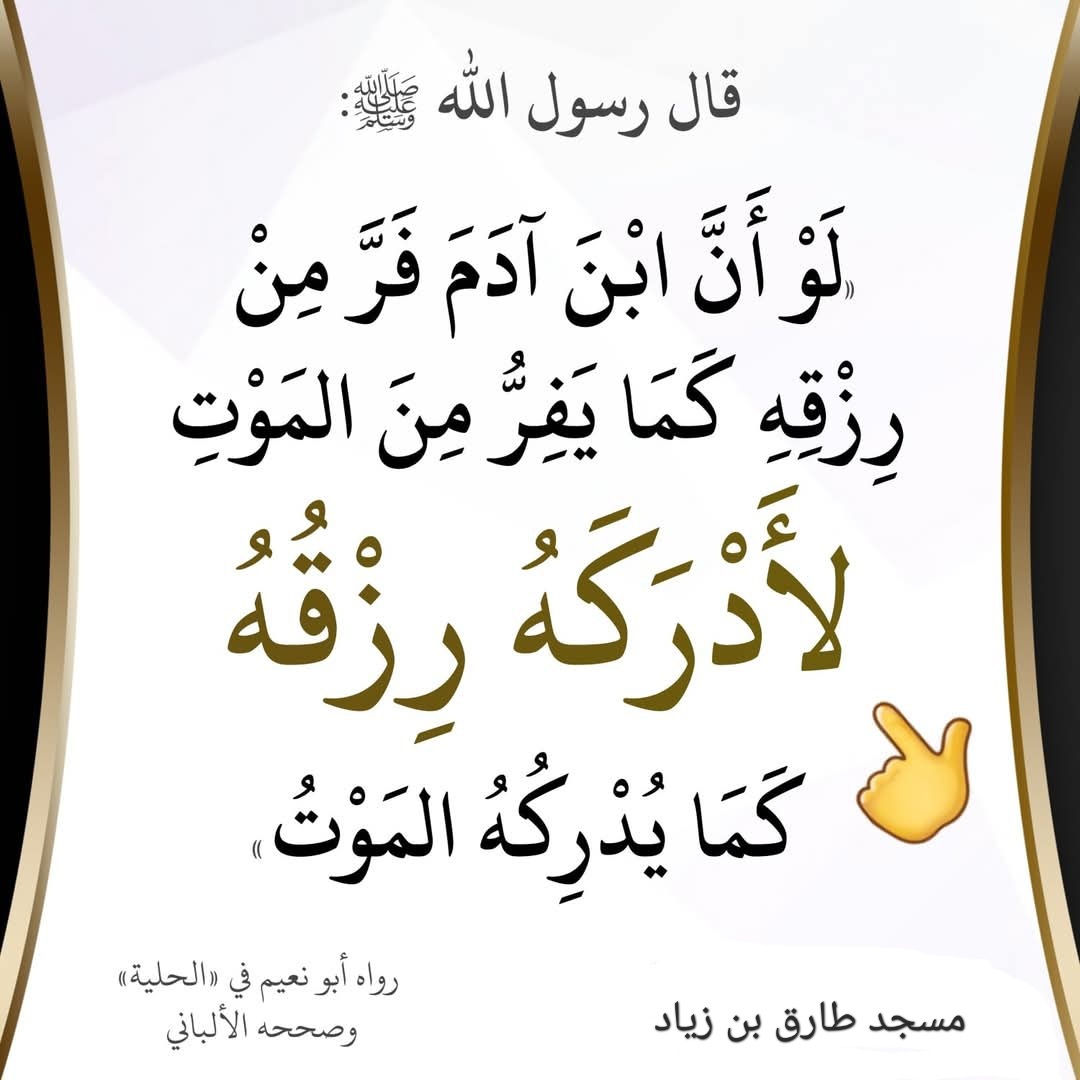 قال رسول الله ﷺ:
«لَوْ أَنَّ ابْنَ آدَمَ فَرَّ مِنْ
رِزْقِهِ كَمَا يَفِرُّ مِنَ المَوْتِ
لأَدْرَكَهُ رِزْقُهُ
كَمَا يُدْرِكُهُ المَوْتُ»
رواه أبو نعيم في «الحلية»
وصححه الألباني
مسجد طارق بن زياد